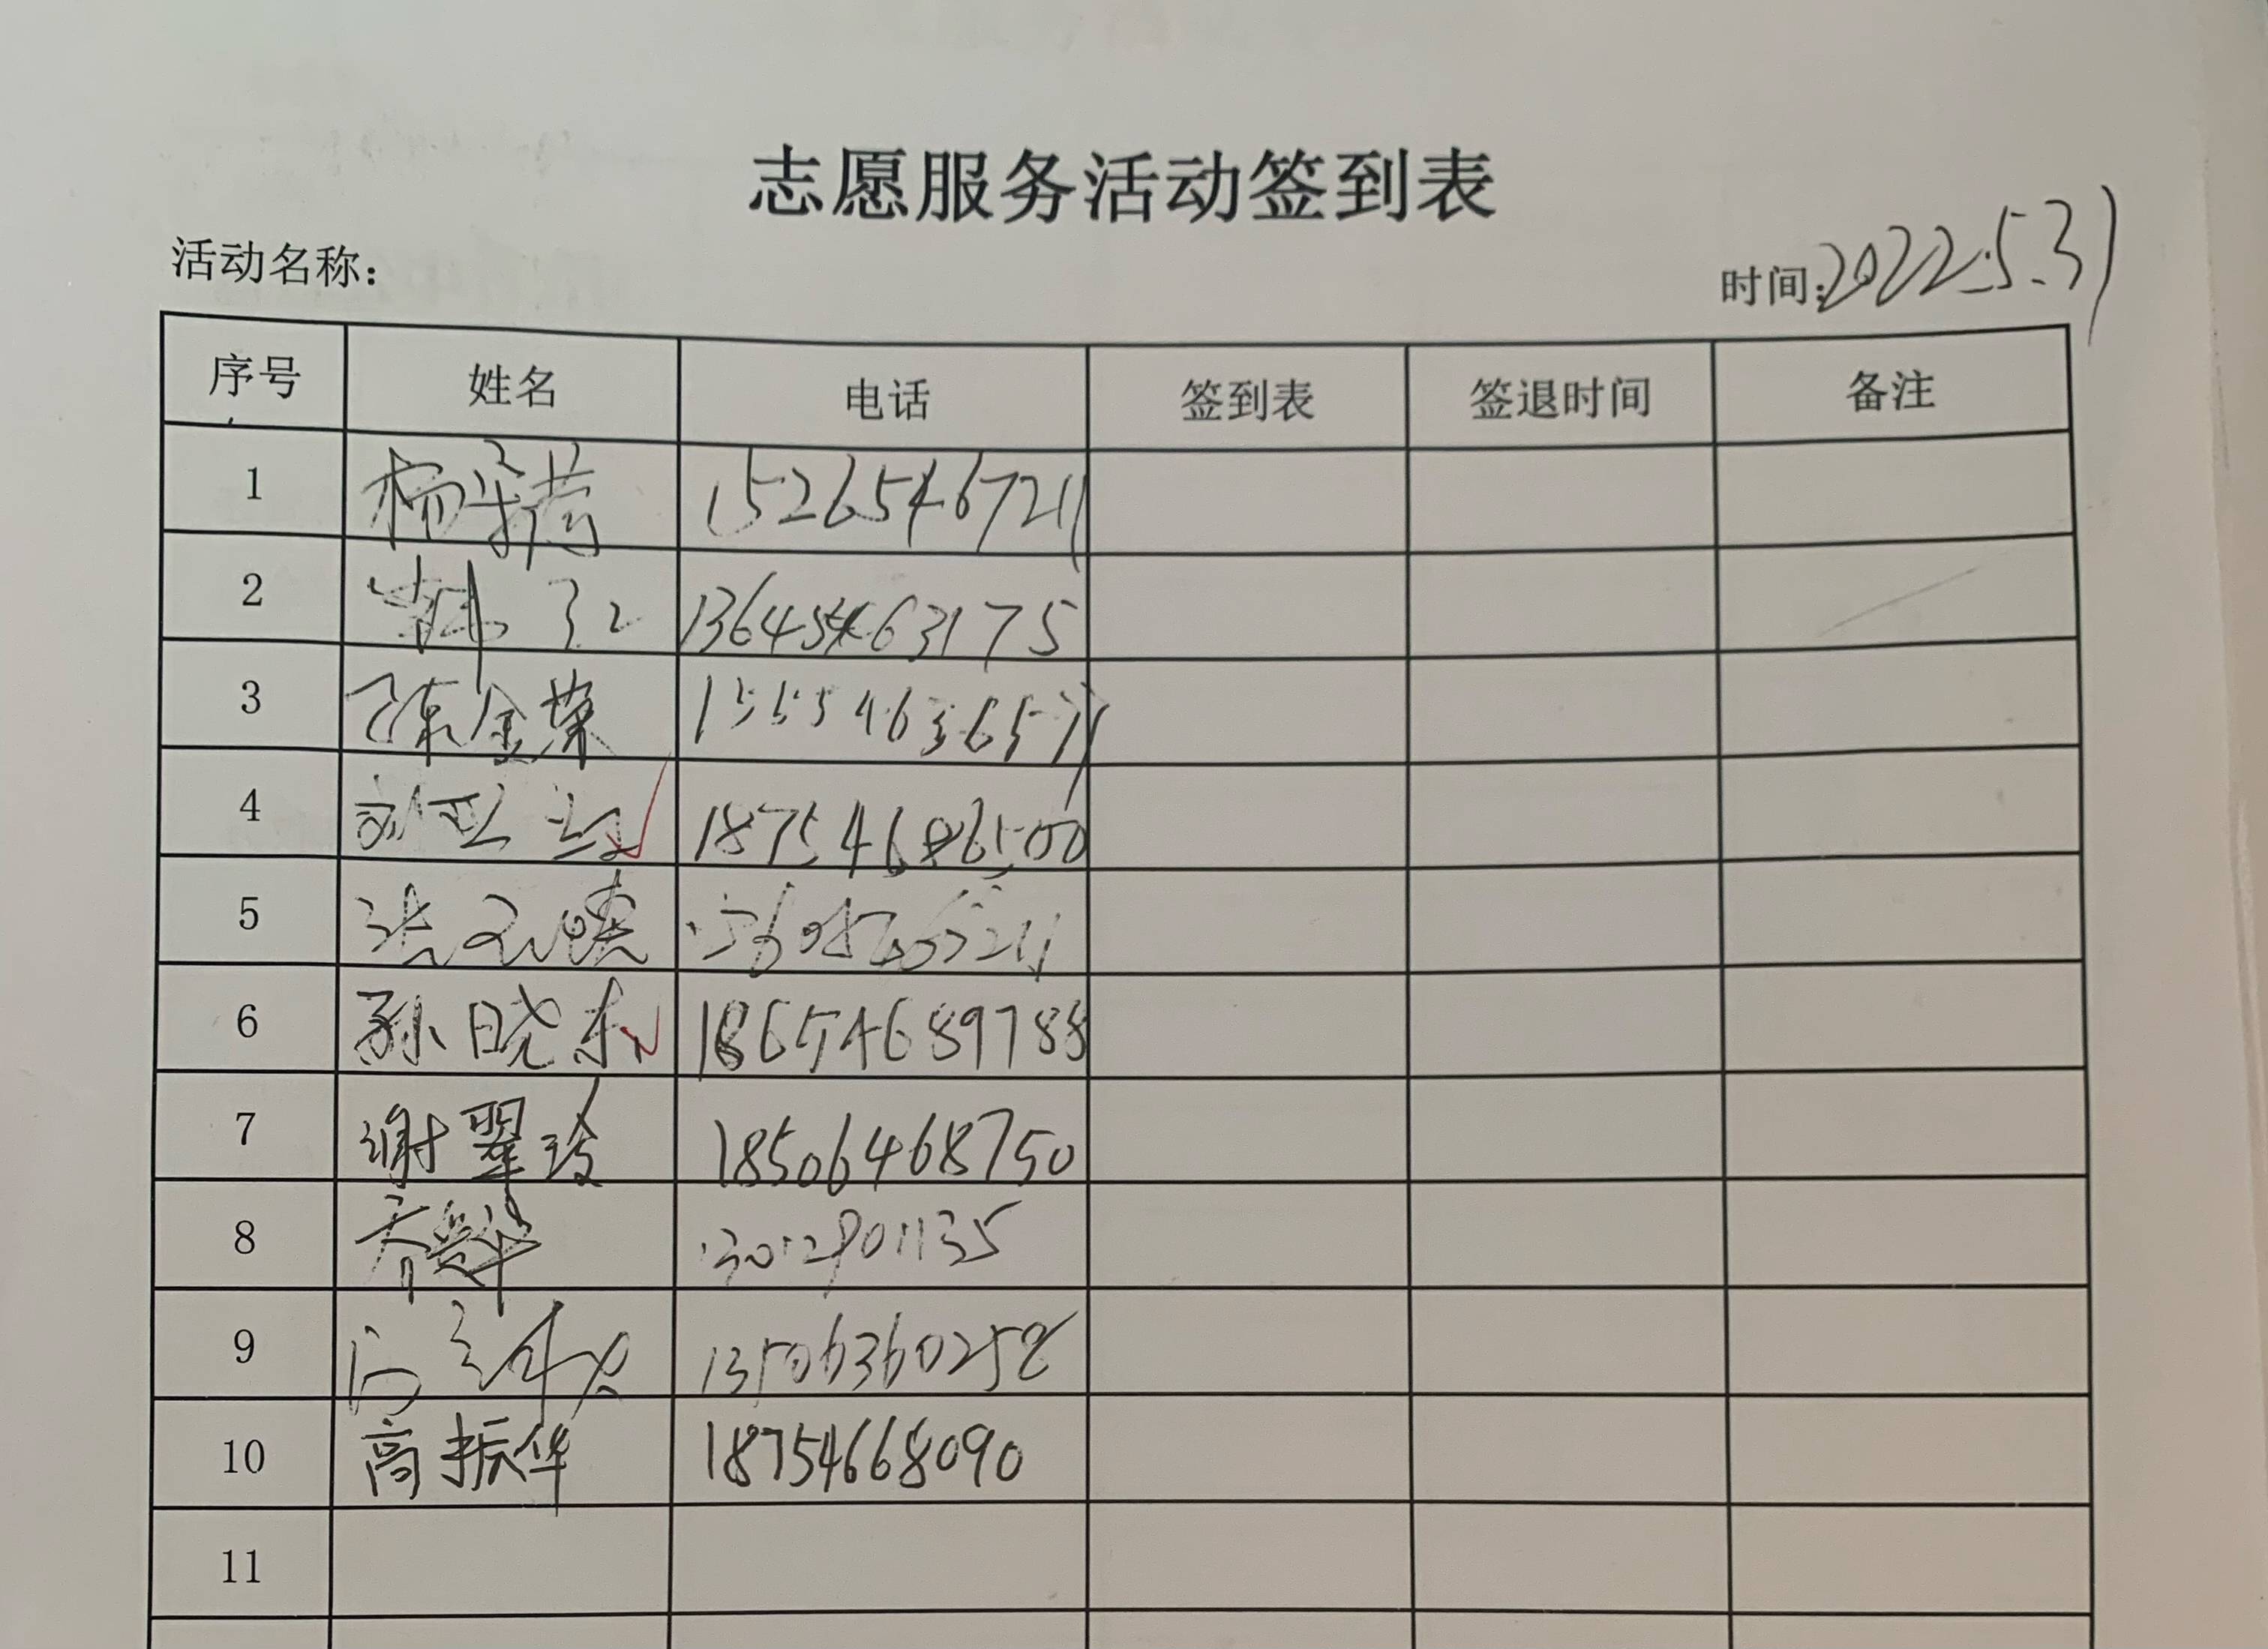 志愿服务活动签到表
活动名称：
时间：2022.5.31
序号 姓名 电话 签到表 签退时间 备注
1 15265467211
2 13645463175
3 陈金荣
4 18754686500
5
6 孙晓东 18654689788
7 谢翠玲 18506468750
8 13012901135
9 13506360258
10 高振华 18754668090
11